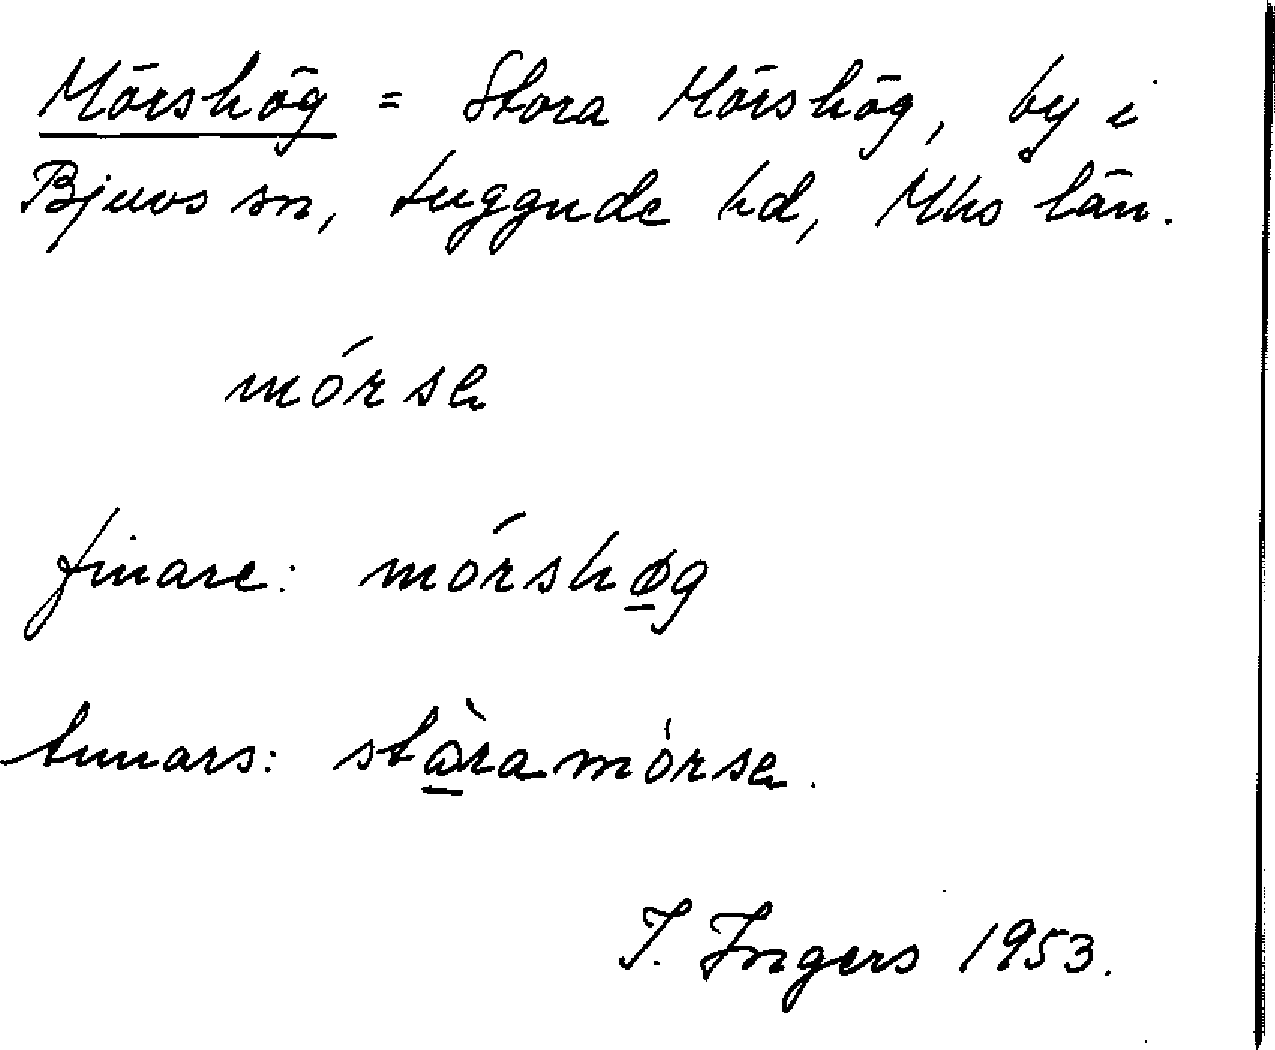 Mörshög = Stora Mörshög, by i
Bjuvs sn, Luggude hd, Mhs län.
mórsa
finare: mórshøg
annars: stàramórsa.
I. Ingers 1953.